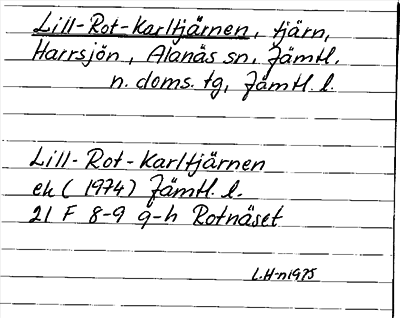 Lill-Rot-Karltjärnen, tjärn,
Harrsjön, Alanäs sn, Jämtl.
n. doms. tg, Jämtl. l.
Lill-Rot-Karltjärnen
ek (1974) Jämtl. l.
21 F 8-9 g-h Rotnäset
L.H-n1975